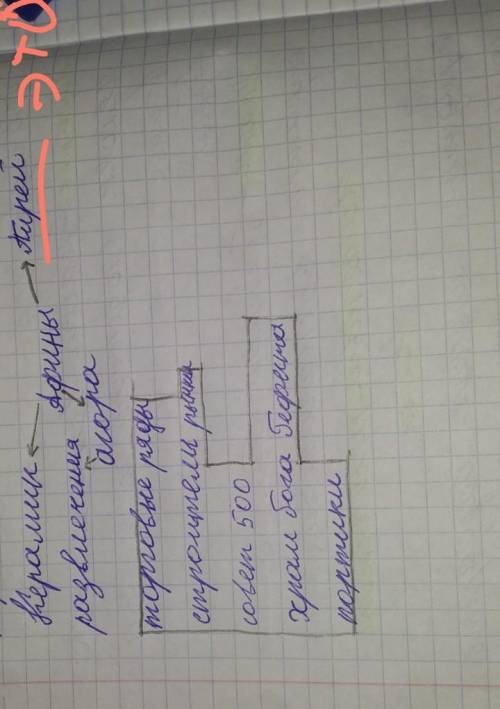 Керамик ← Афины → Пирей — ЭТО
развлечения
агора
торговые ряды
строители рынки
совет 500
храм бога Гефеста
портики